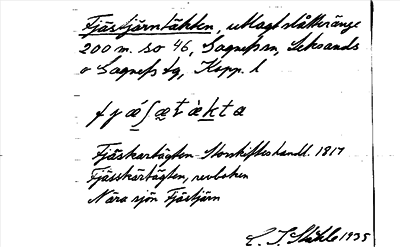 Fjästjärntäkten, utlagt slåtteränge
200 m. so 46, Sågnesen, Leksands
o Sagnets fg, Kopp. l
Fjäskartägten Storskifteshandl. 1817
Fjässkärtägten, revboken
Nära sjön Fjästjärn
1935